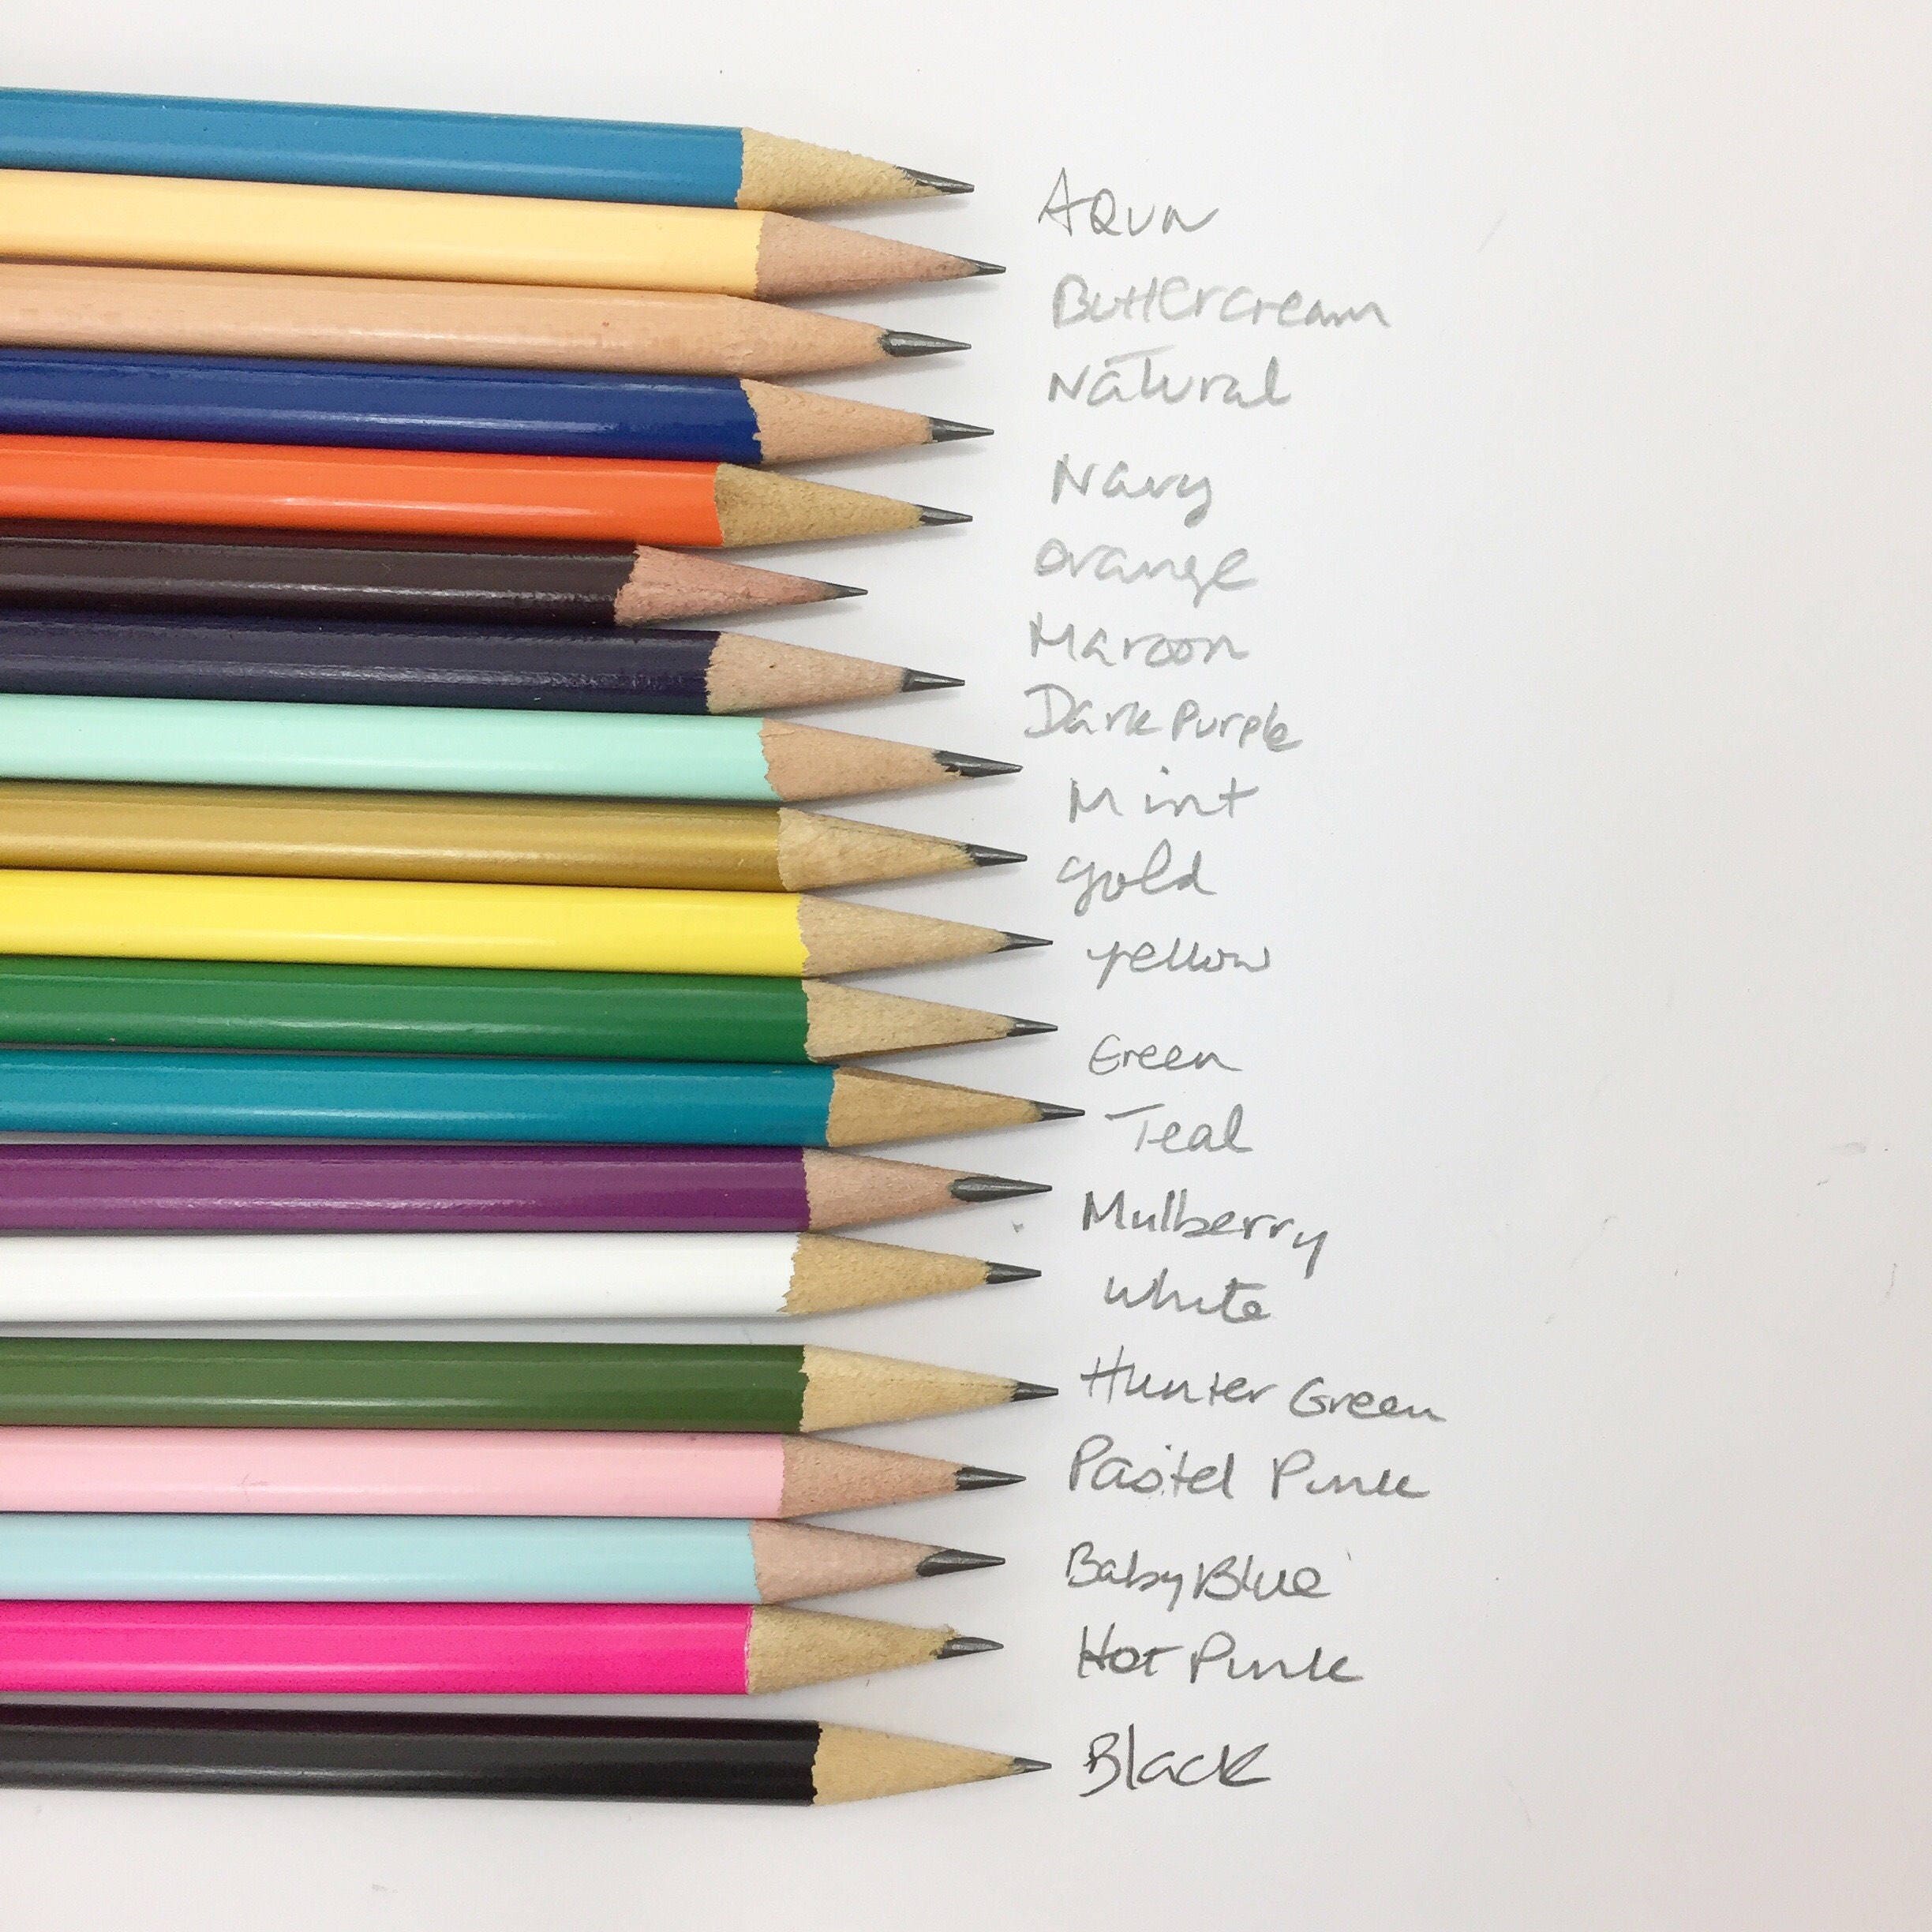 Aqua
Buttercream
Natural
Navy
Orange
Maroon
Dark Purple
Mint
gold
yellow
Green
Teal
Mulberry
White
Hunter Green
Pastel Pink
Baby Blue
Hot Pink
Black